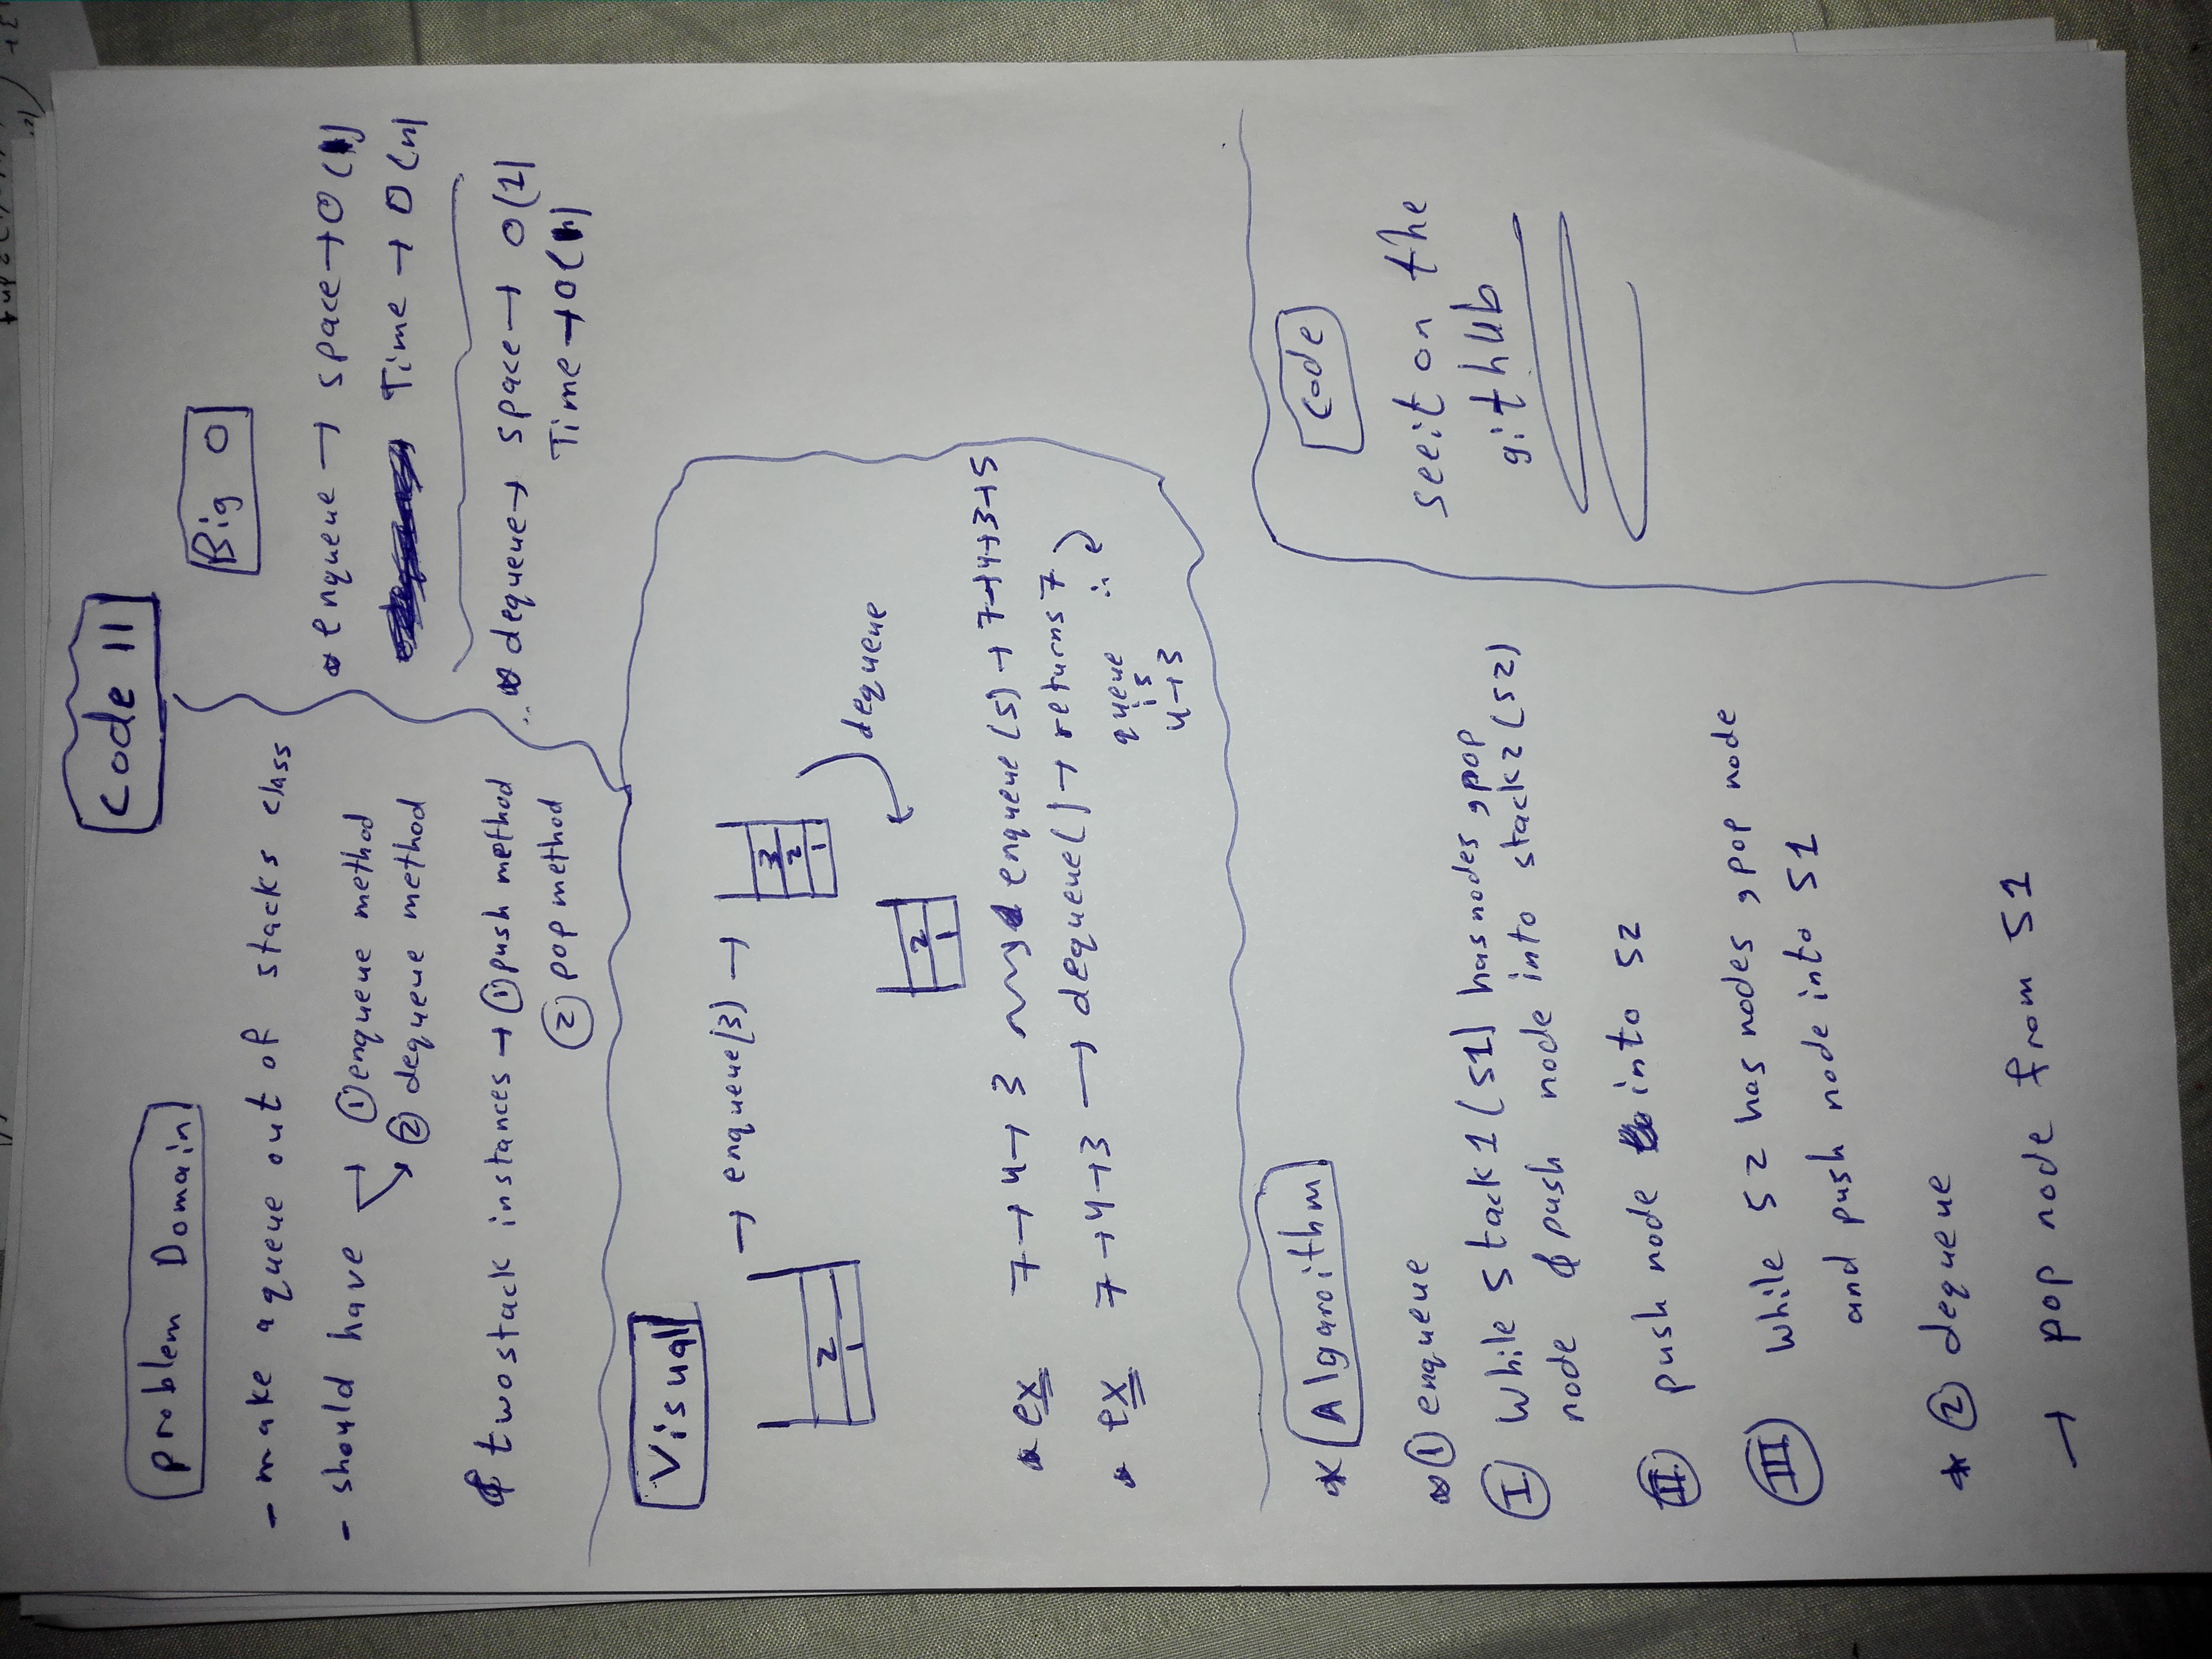 Code 11
problem Domain
- make a queue out of stacks class
- should have → ① enqueue method
② dequeue method
two stack instances → ① push method
② pop method
Big O
enqueue → space → O(
Time → O(n)
dequeue → space → O(1)
Time → O(
Visual
2
1
→ enqueue(3) →
3
2
1
dequeue
2
1
ex 7 → 4 → 3 enqueue(5) → 7→4→3→5
ex 7 → 4 → 3 → dequeue() → returns 7 ∴
queue
is
4→3
* Algaroithm
① enqueue
Ⅰ While Stack 1 (S1) has nodes, pop
node & push node into stack 2 (S2)
Ⅱ push node into S2
Ⅲ While S2 has nodes, pop node
and push node into S1
* ② dequeue
→ pop node from S1
Code
see it on the
github